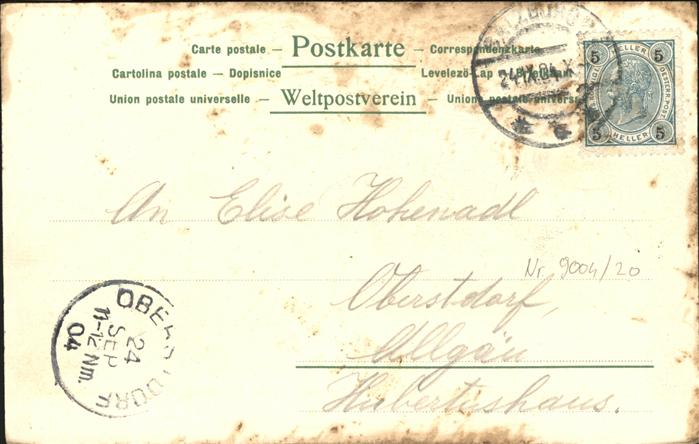 Carte postale – Postkarte – Correspondenzkarte
Cartolina postale – Dopisnice Levelező-Lap
Union postale universelle – Weltpostverein – Union postale universelle
24.IX.04
5 HELLER 5
5 HELLER 5
An Elise Hohenadl
Nr. 9004/20
Oberstdorf,
Allgäu
Hubertushaus.
OBERSTDORF
24
SEP
11-12 Nm.
04